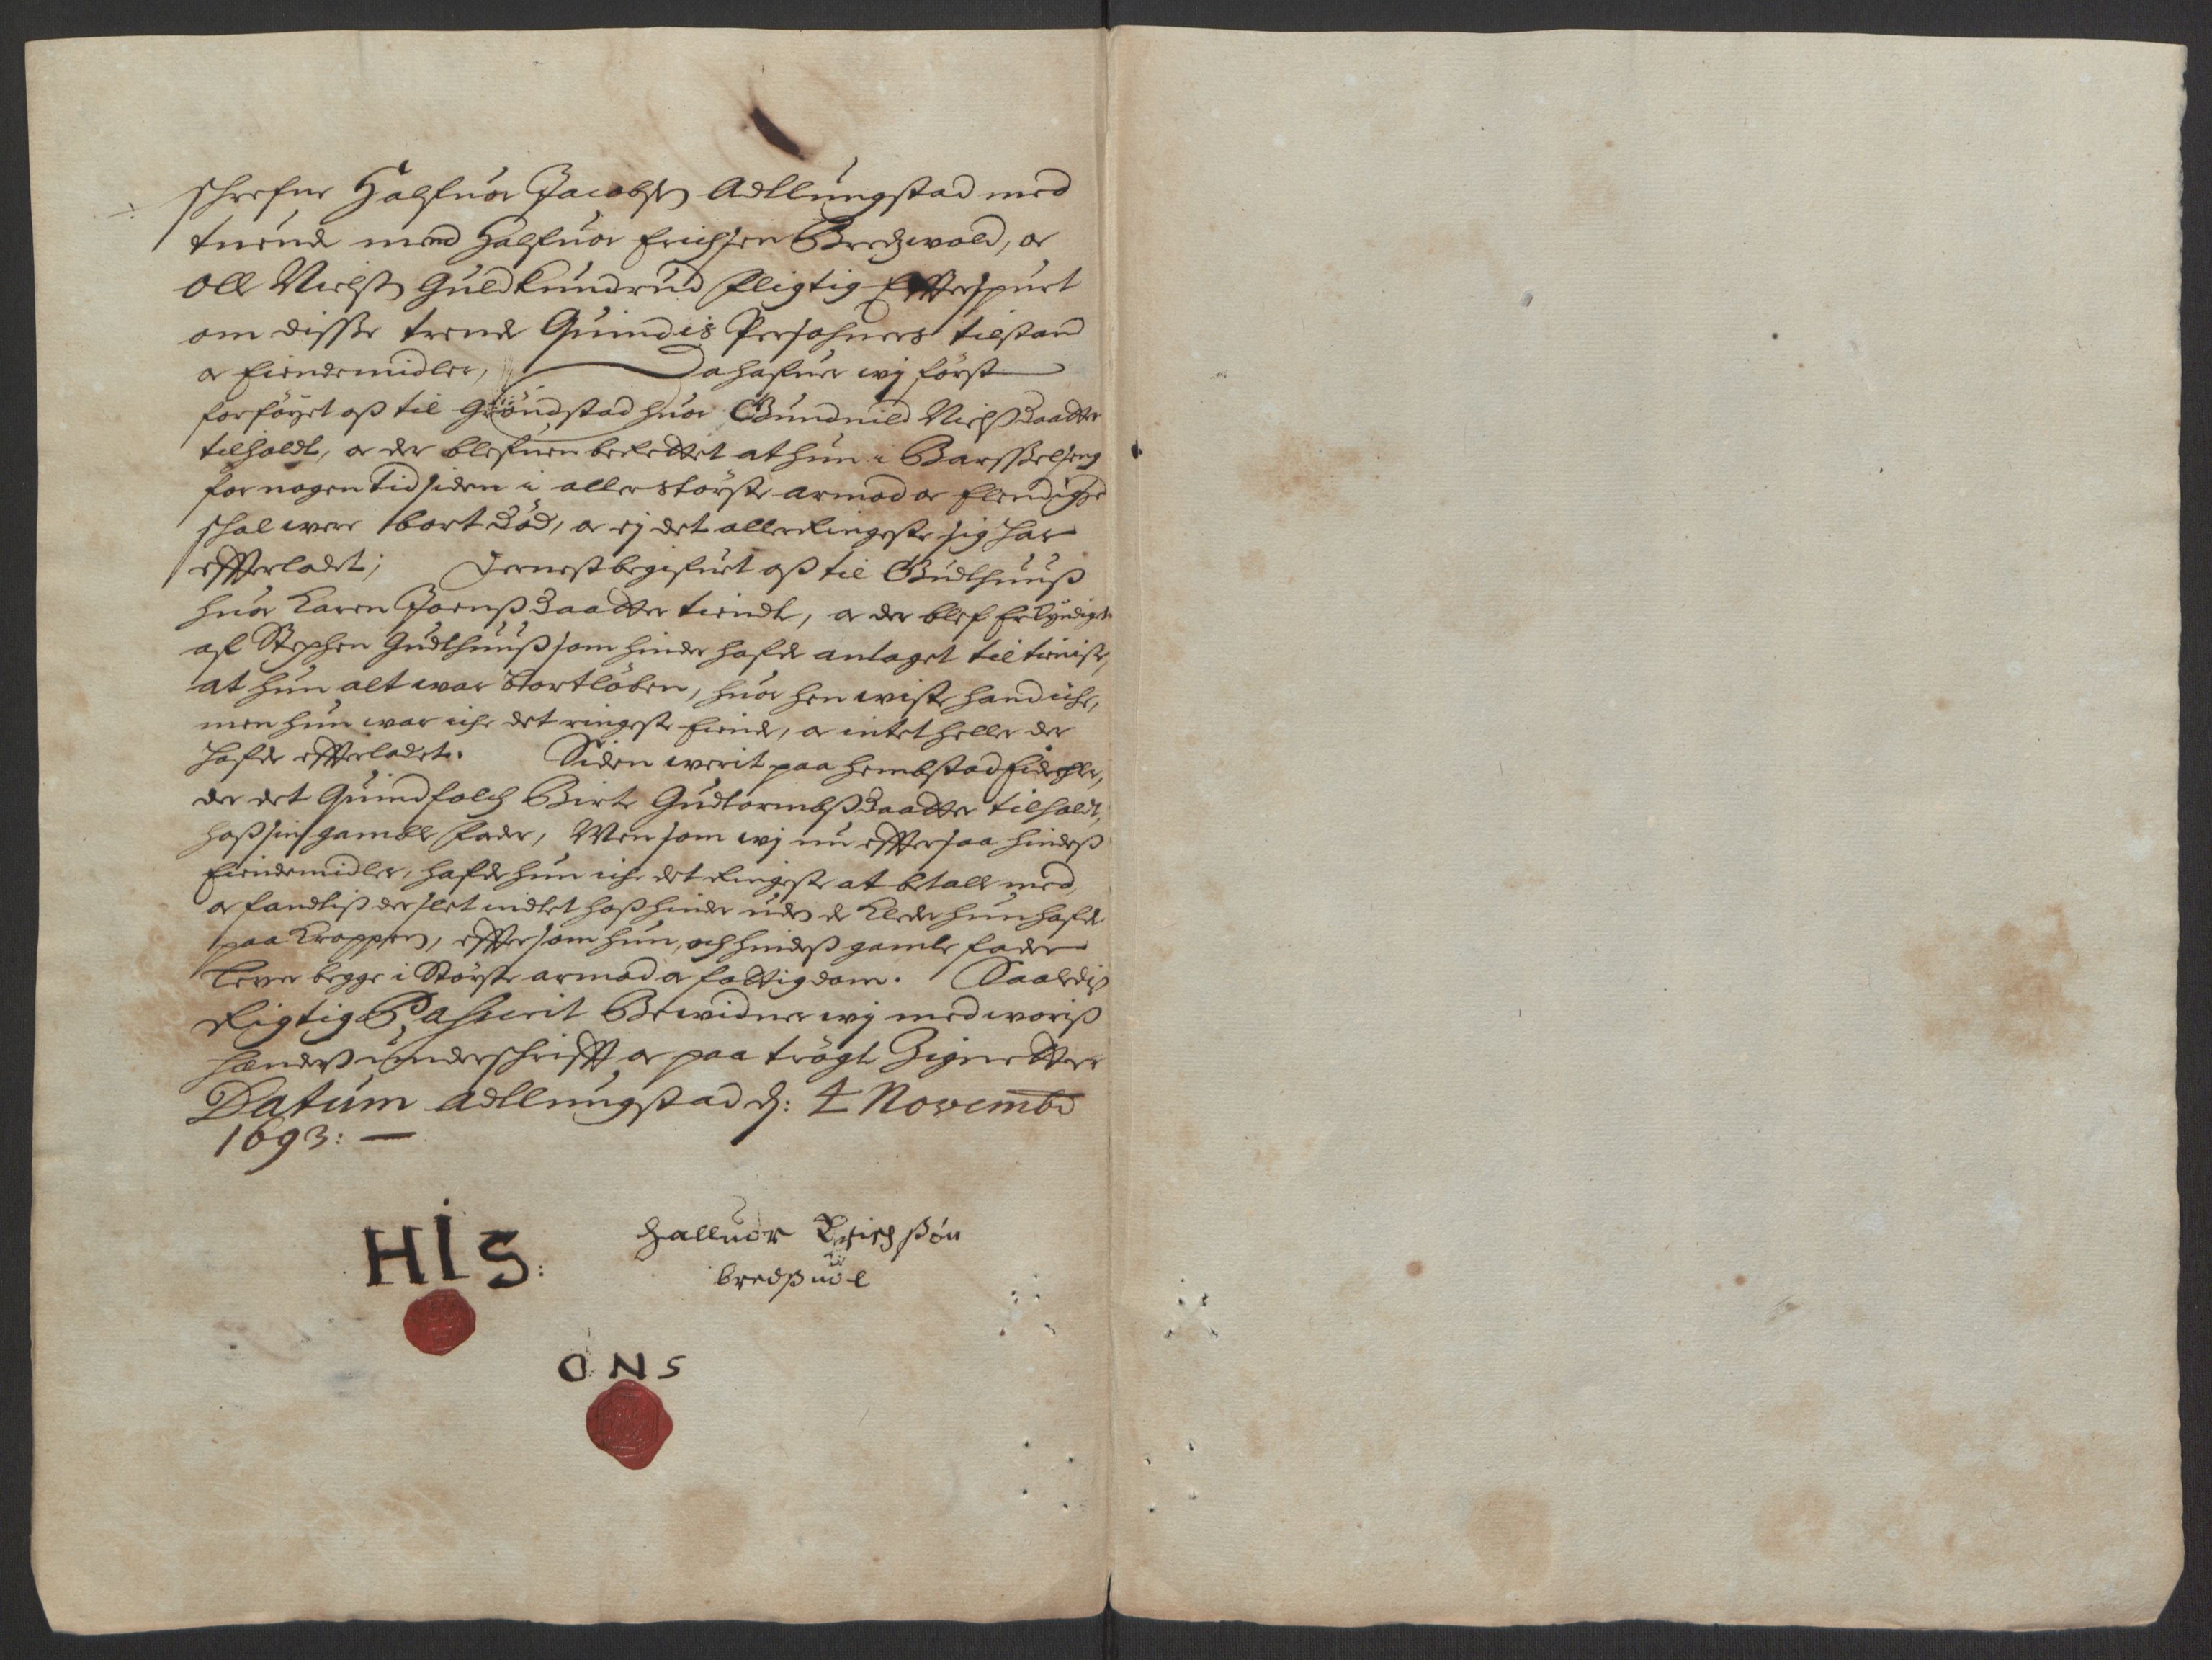 schrefne Halfuor Jacobsen Adllungstad med
tuende mend Halfuor Erichsen Bredzwold, oc
Oll Nielsen Guldkundrud fligtig Efterspurt
om disse trende Quindis Persohners tilstand
oc Eiendemidler, Da hafuer wij först
forföyet oss til Gröndstad huor Gundnild Nielssdaatter
tilholdt, oc der blefuen berettet at hun i Barsselseng
for nogen tid siden i aller störste armod oc Elendighed
schal were bort död, oc ej det allerringeste sig har
efterladt; Dernest begifuet oss til Gudlhuuss
huor Karen Joenssdaatter tiendte, oc der blef Erkyndiget
af Stephen Gudlhuuss som hinde hafde antaget til tieniste,
at hun alt war bortlöben, huor hen wiste hand iche,
men hun war iche det ringeste Eiende, oc intet heller der
hafde efterladt. Siden werit paa Hembstad
der det Quindfolch Birte Gudtormbssdaatter tilholdt,
hoss sin gamble fader, Men som wj nu efftersaa hindess
Eiendemidler, hafde hun iche det ringeste at betalle med,
oc fandtis der slet indtet hoss hinde uden de kleder hun hafde
paa Kroppen, effter som hun, och hindess gamle fader
lever begge i störste armod oc fattigdom. Saaledis
Rigtig Passerit Bewidner wij med woriss
hænderss underschrifft oc paa trögte Zignetter
Datum Adllungstad d: 4 Novembr
1693: —
HIS:
Halluor Erichssön
bredssuol
ONS